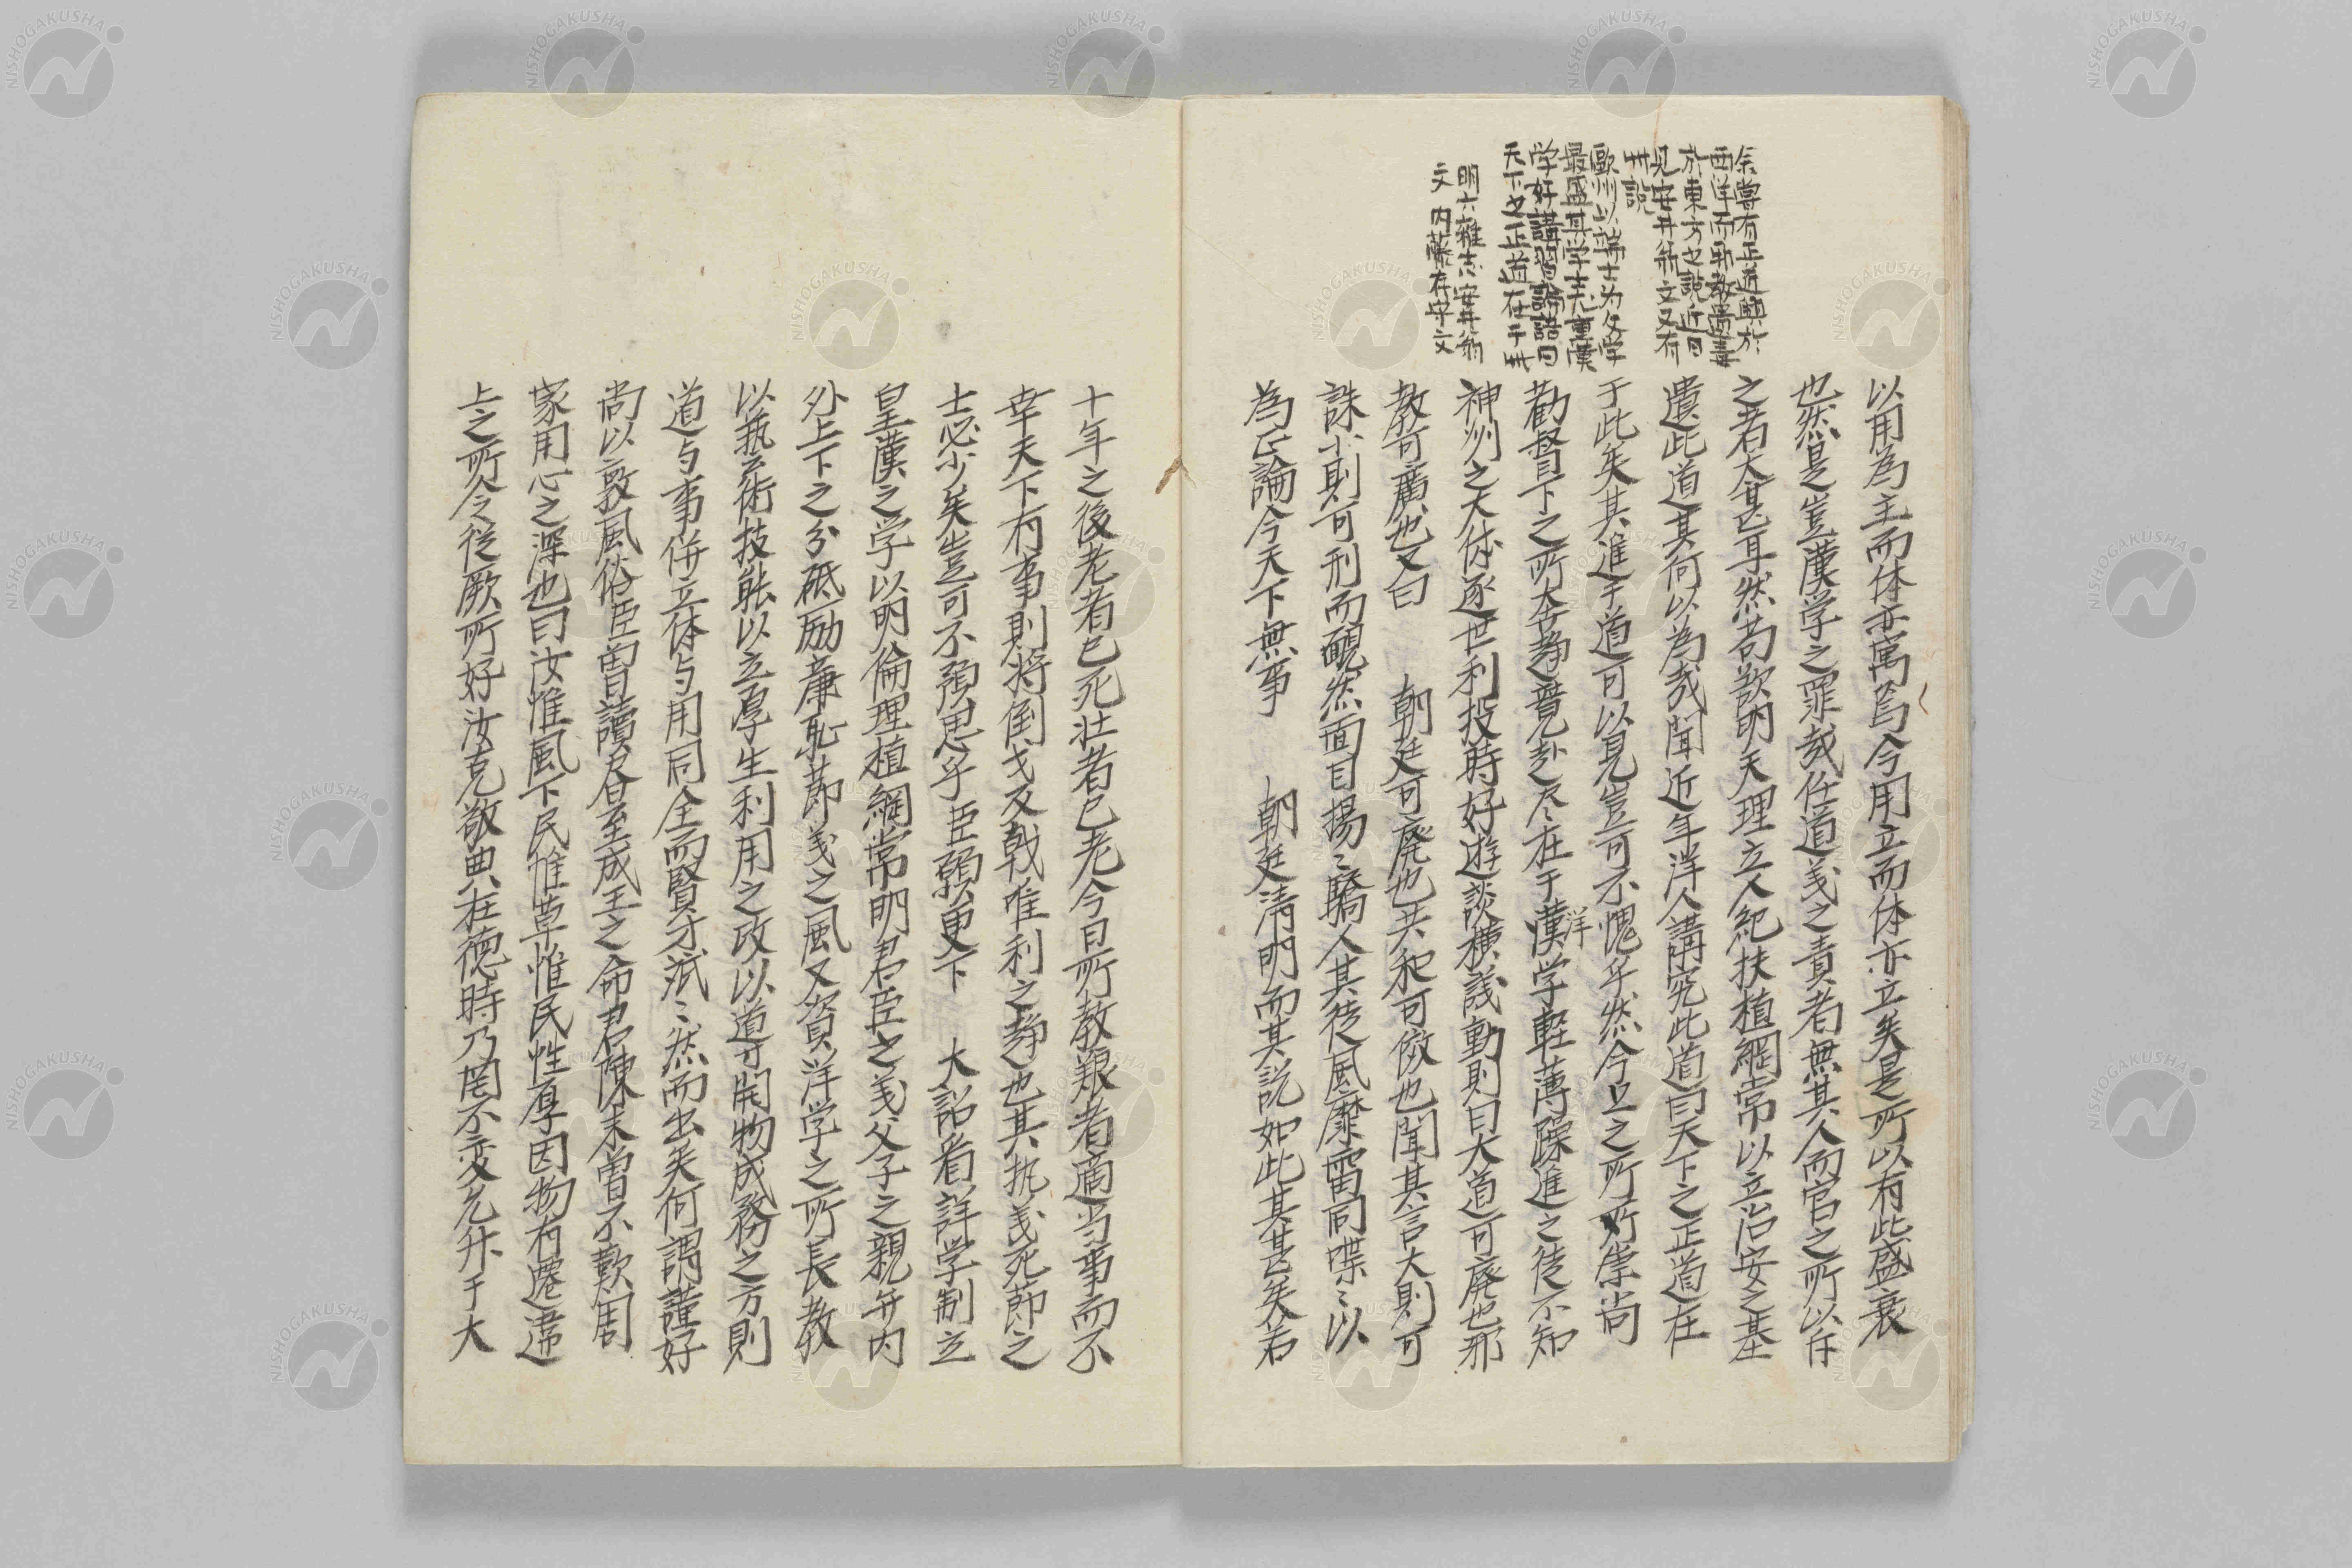 余嘗有正道興於
西洋而耶教
於東方之説近日
見安井翁文又有
此説
歐洲以端士为文学
最盛其学士尤重漢
学好講習論語曰
天下之正道在于此
明六雑志安井翁
文 内藤存守文
以用為主而体亦寓焉今用立而体亦立矣是所以有此盛衰
也然是豈漢学之罪哉任道義之責者無其人而官之所以任
之者太甚耳然苟欲明天理立人紀扶植綱常以立治安之基
遺此道其何以為哉聞近年洋人講究此道曰天下之正道在
于此矣其進于道可以見豈可不愧乎然今上之所崇尚
勸督下之所奔競赴尽在于漢洋学軽薄躁進之徒不知
神州之大体逐世利投時好遊談横議動則曰大道可廃也耶
教可廣也又曰 朝廷可廃也共和可倣也聞其言大則可
誅小則可刑而靦然面目揚〻驕人其徒風靡雷同喋〻以
為正論今天下無事 朝廷清明而其説如此其甚矣若
十年之後老者已死壮者已老今日所教艱者適当事而不
幸天下有事則将倒戈反戟唯利之静也其執義死節之
士必少矣豈可不預思乎臣願更下 大詔着詳学制立
皇漢之学以明人倫理植綱常明君臣之義父子之親弁内
外上下之分砥励廉恥節義之風又資洋学之所長教
以執芸術技能以立厚生利用之政以道可開物成務之方則
道与事併立体与用同全而賢才濟〻然而出矣何謂謹好
尚以敦風俗臣嘗讀書至成王之命君陳未曽不歎周
家用心之深也曰汝惟風下民惟草惟民性厚因物有遷違
上之所令従厥所好汝克敬典在徳時乃罔不変允升于大